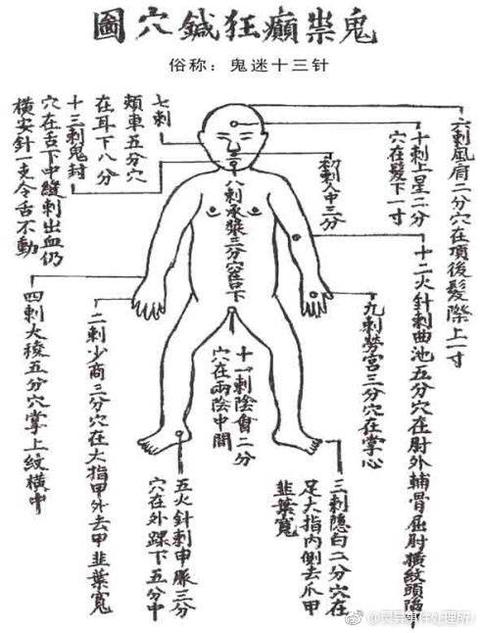 鬼祟癲狂鍼穴圖
俗称：鬼迷十三针
六刺風府二分穴在項後髮際上一寸
十刺上星二分
穴在髮下一寸
初刺人中三分
十二火針刺曲池五分穴在肘外輔骨屈肘橫紋頭陷中
九刺勞宮三分穴在掌心
三刺隱白二分穴在
足大指內側去爪甲
韭葉寬
八刺承漿三分穴唇下
十一刺陰會二分
穴在兩陰中間
五火針刺申脈三分
穴在外踝下五分中
七刺
頰車五分穴
在耳下八分
十三刺鬼封
穴在舌下中縫刺出血仍
橫安針一支令舌不動
二刺少商三分穴在大指甲外去甲韭葉寬
四刺大稜五分穴掌上紋橫中